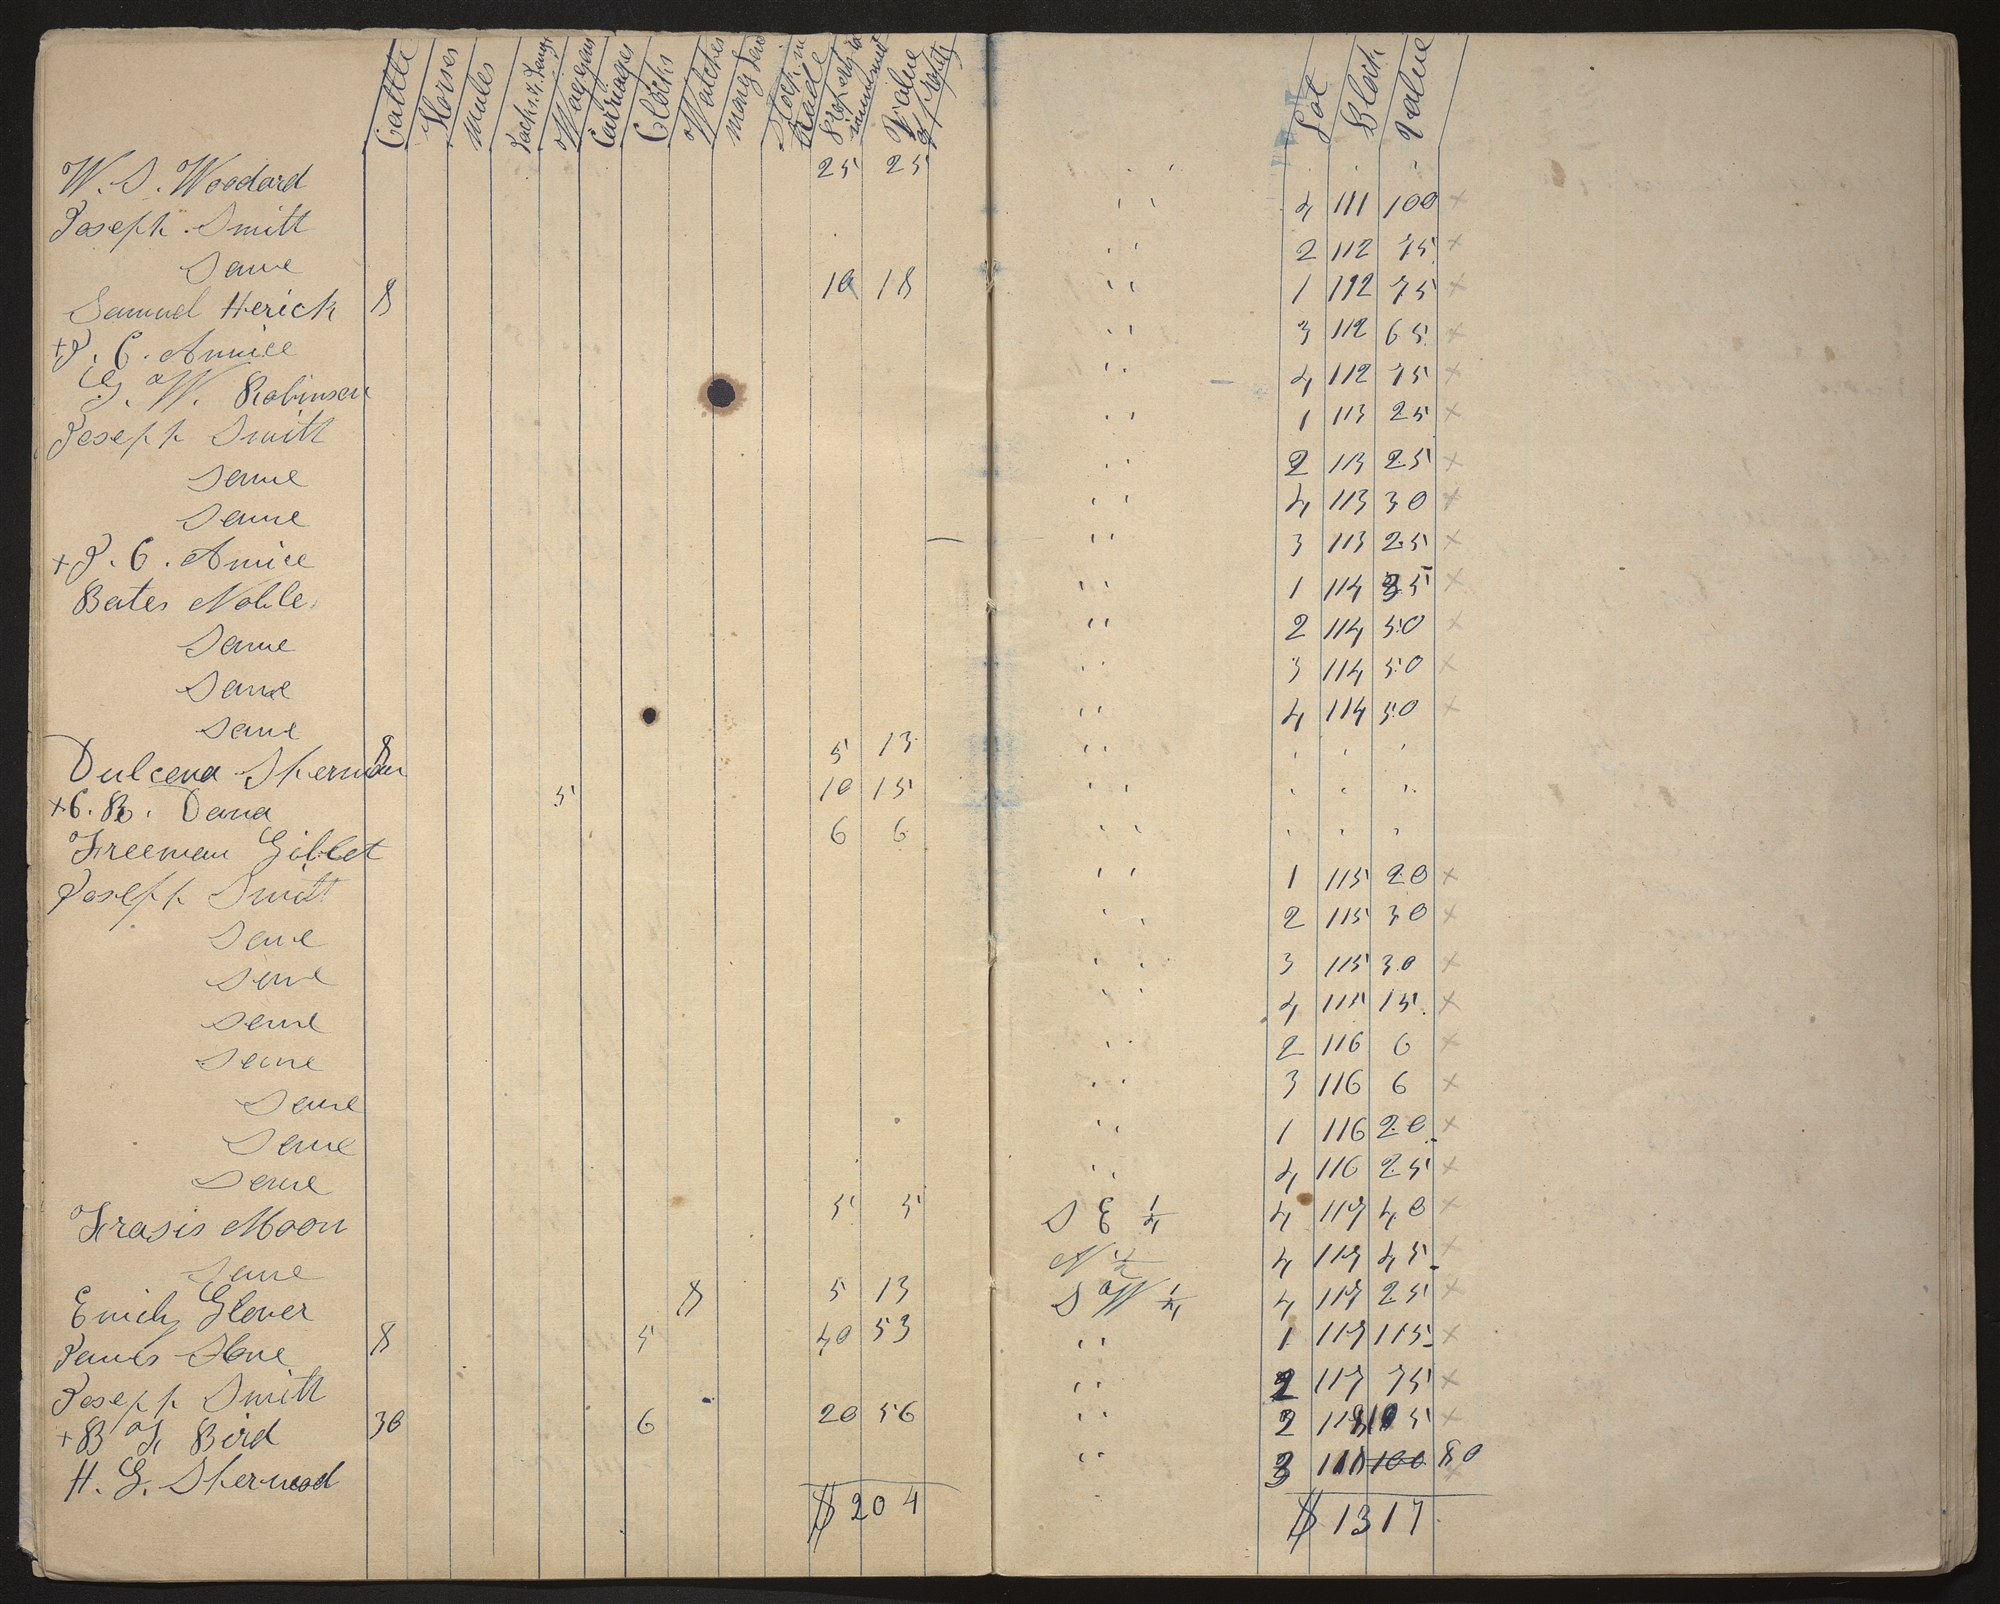 Cattle Horses Mules Waggons Carriages Clocks Watches mony Stock in trade Property Value of Lot Block Value
W. S. Woodard 25 25
Joseph Smith 4 111 100 x
Same 2 112 75 x
Samuel Herick 8 10 18 1 112 75 x
+ J. C. Annice 3 112 65 x
G. W. Robinson 4 112 75 x
Joseph Smith 1 113 25 x
Same 2 113 25 x
Same 4 113 30 x
+ J. C. Annice 3 113 25 x
Bates Noble 1 114 35 x
Same 2 114 50 x
Same 3 114 50 x
Same 4 114 50 x
Dulcena Sherman 8 5 13
+ C. R. Dana 5 10 15
Freeman Gibbet 6 6
Joseph Smith 1 115 20 x
Same 2 115 30 x
Same 3 115 30 x
Same 4 115 15 x
Same 2 116 6 x
Same 3 116 6 x
Same 1 116 20 x
Same 4 116 25 x
Frasis Moon 5 5 S E ¼ 4 117 40 x
Same N ½ 4 117 45 x
Emily Glover 8 5 13 S W ¼ 4 117 25 x
James Slone 8 5 40 53 1 117 115 x
Joseph Smith 2 117 75 x
+ B F Bird 30 6 20 56 2 118 105 x
H. G. Sherwood 3 118 100 80 x
$ 204 $ 1317